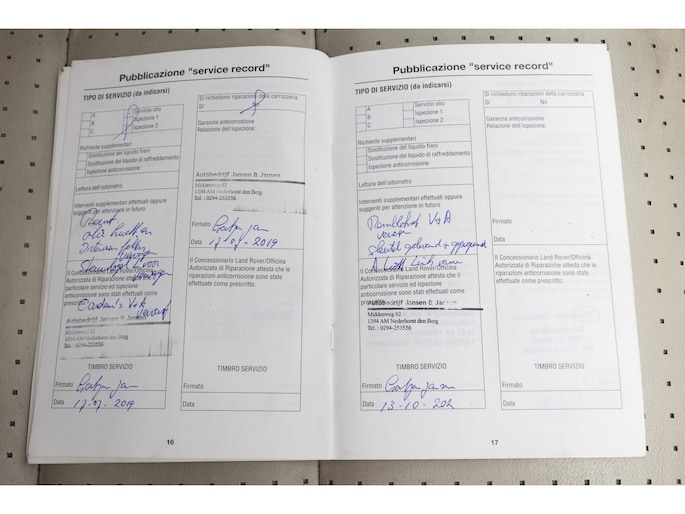 Pubblicazione "service record"
TIPO DI SERVIZIO (da indicarsi)
A
B
C
Servizio olio
Ispezione 1
Ispezione 2
Richieste supplementari
Sostituzione del liquido freni
Sostituzione del liquido di raffreddamento
Ispezione anticorrosione
Lettura dell'odometro
Interventi supplementari effettuati oppure
suggeriti per attenzione in futuro
Il Concessionario Land Rover/Officina
Autorizzata di Riparazione attesta che il
particolare servizio ed ispezione
anticorrosione sono stati effettuati come
prescritto.
V+A
Autobedrijf Jansen & Jansen
Middenweg 82
1394 AM Nederhorst den Berg
Tel. : 0294-253556
TIMBRO SERVIZIO
Firmato
Data 17-07-2019
Si richiedono riparazioni della carrozzeria
Si' No
Garanzia anticorrosione
Relazione dell'ispezione:
Autobedrijf Jansen & Jansen
Middenweg 82
1394 AM Nederhorst den Berg
Tel. : 0294-253556
Firmato
Data 17-07-2019
Il Concessionario Land Rover/Officina
Autorizzata di Riparazione attesta che le
riparazioni anticorrosione sono state
effettuate come prescritto.
TIMBRO SERVIZIO
Firmato
Data
16
Pubblicazione "service record"
TIPO DI SERVIZIO (da indicarsi)
A
B
C
Servizio olio
Ispezione 1
Ispezione 2
Richieste supplementari
Sostituzione del liquido freni
Sostituzione del liquido di raffreddamento
Ispezione anticorrosione
Lettura dell'odometro
Interventi supplementari effettuati oppure
suggeriti per attenzione in futuro
V+A
Il Concessionario Land Rover/Officina
Autorizzata di Riparazione attesta che il
particolare servizio ed ispezione
anticorrosione sono stati effettuati come
Autobedrijf Jansen & Jansen
Middenweg 82
1394 AM Nederhorst den Berg
Tel. : 0294-253556
TIMBRO SERVIZIO
Firmato
Data 13-10-202
Si richiedono riparazioni della carrozzeria
Si' No
Garanzia anticorrosione
Relazione dell'ispezione:
Firmato
Data
Il Concessionario Land Rover/Officina
Autorizzata di Riparazione attesta che le
riparazioni anticorrosione sono state
effettuate come prescritto.
TIMBRO SERVIZIO
Firmato
Data
17